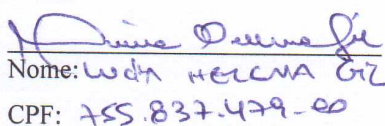 Nome: LUCIA HELENA GIL
CPF: 755.837.479-00